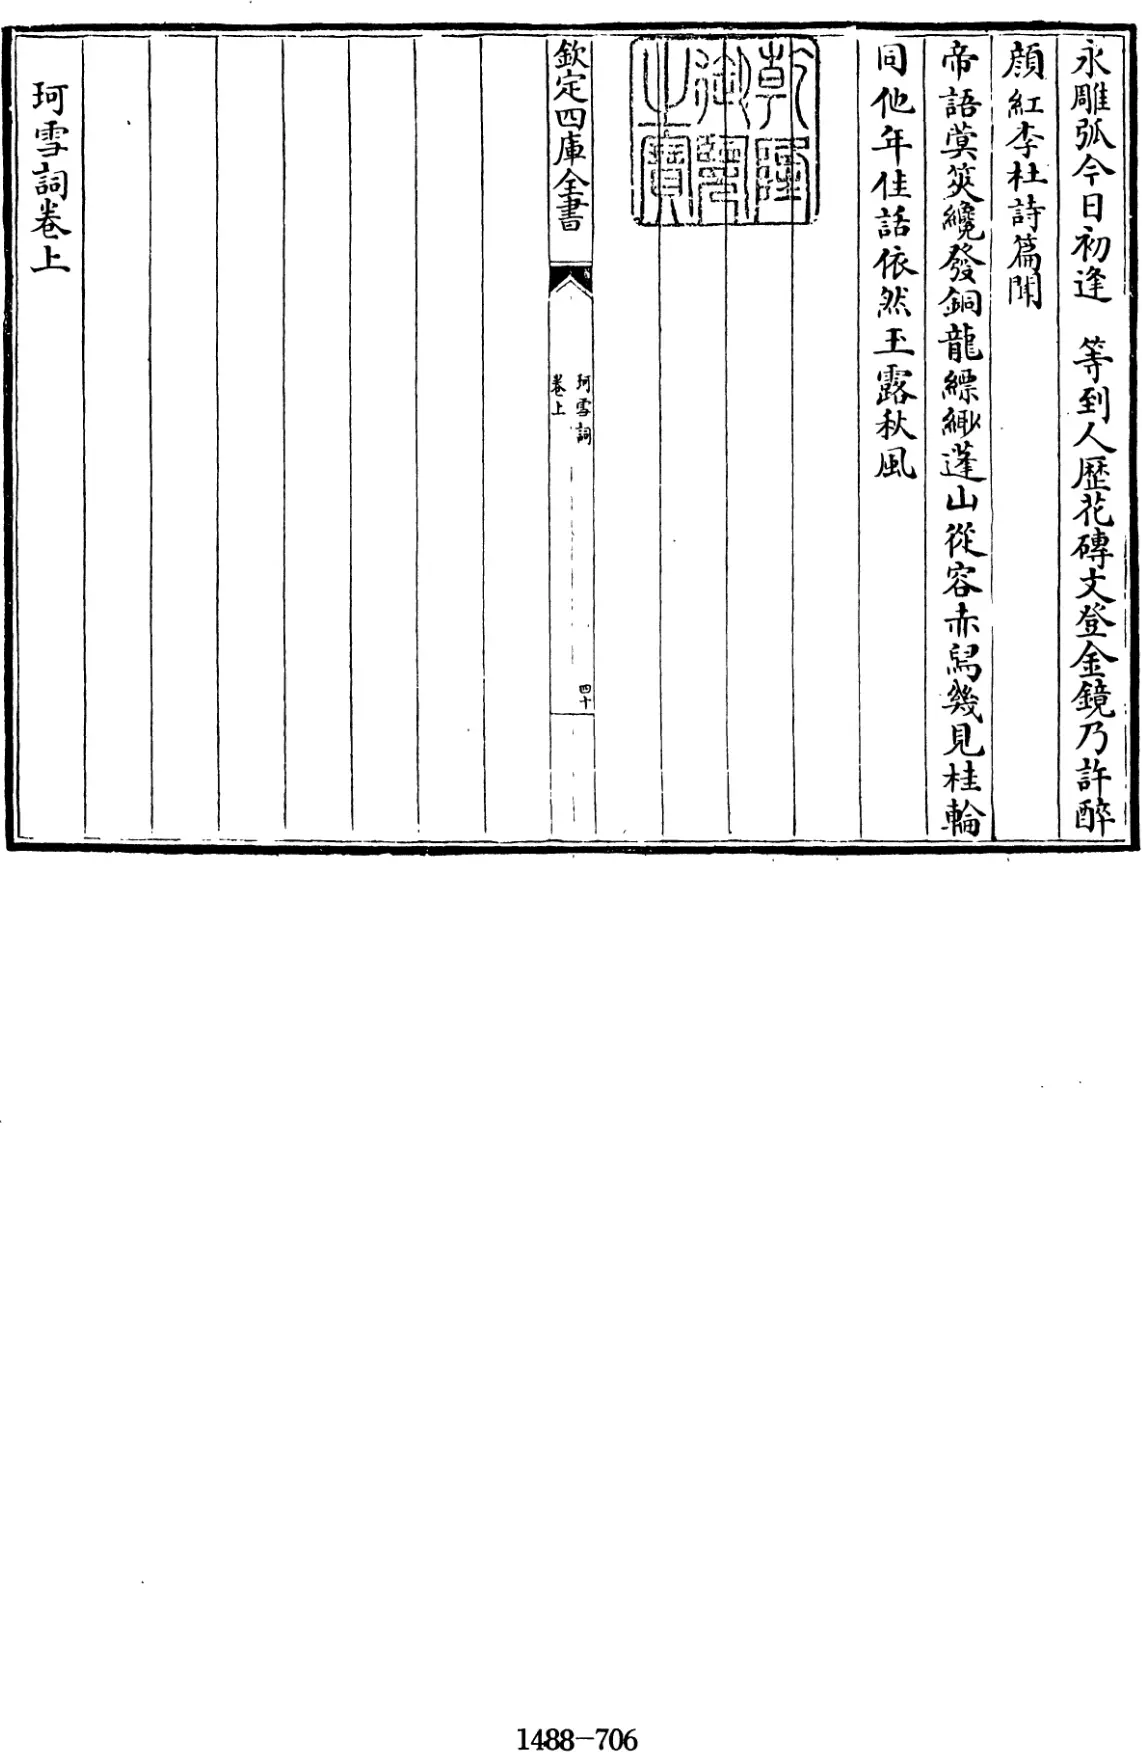 永雕弧今日初逢　等到人歷花磚文登金鏡乃許醉
顔紅李杜詩篇聞
帝語蓂莢纔發銅龍縹緲蓬山從容赤舄幾見桂輪
同他年佳話依然玉露秋風
乾隆御覽之寶
欽定四庫全書
珂雪詞
卷上
四十
珂雪詞卷上
1488-706